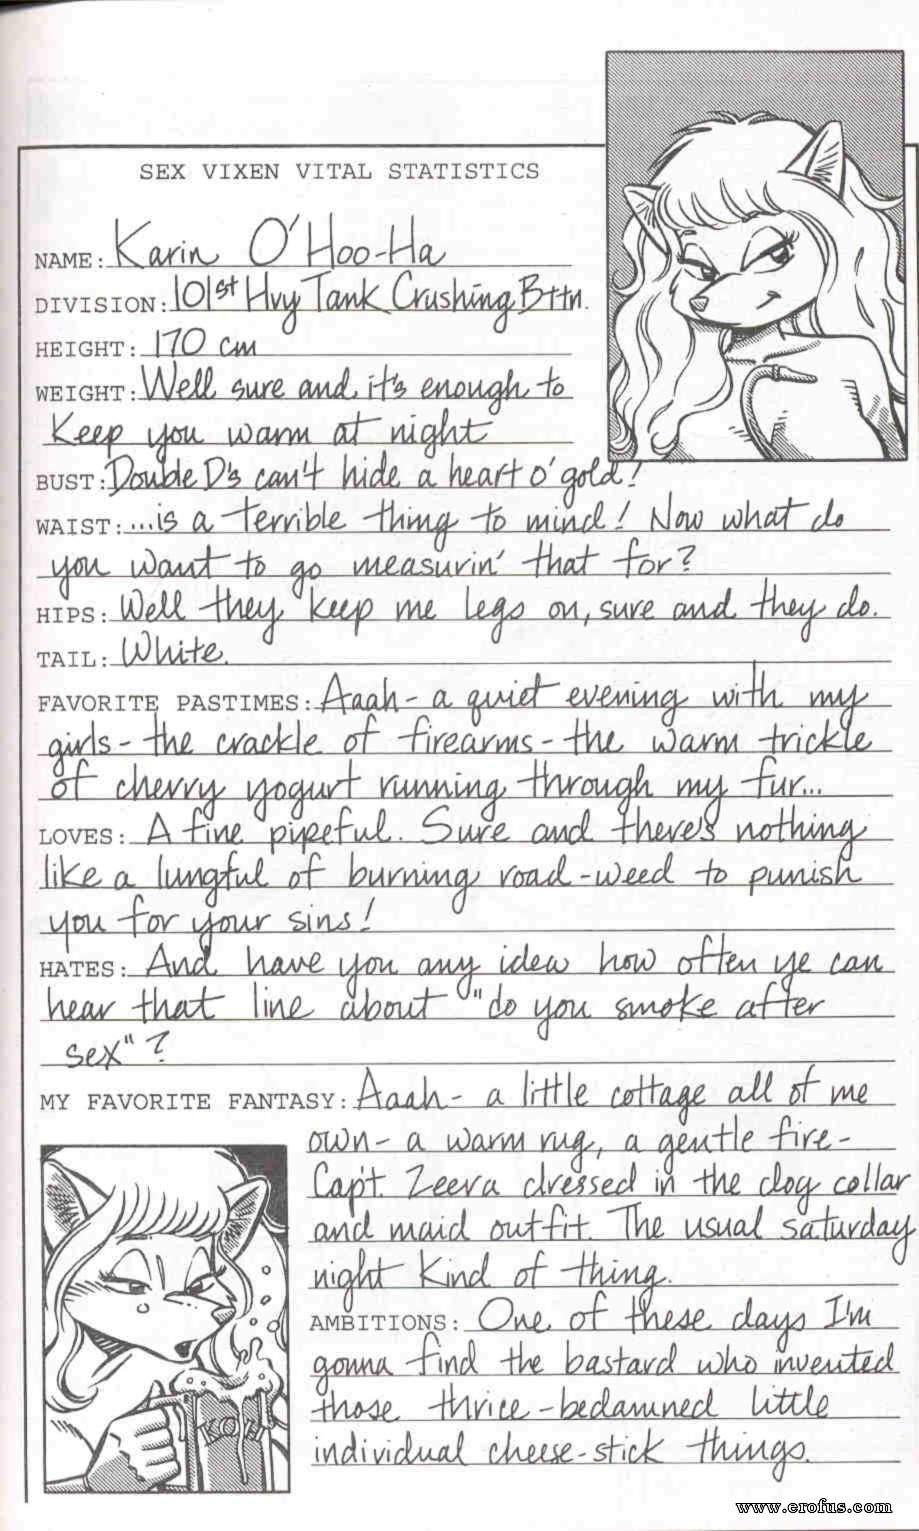 SEX VIXEN VITAL STATISTICS
NAME: Karin O'Hoo-Ha
DIVISION: 101st Hvy Tank Crushing Bttn.
HEIGHT: 170 cm
WEIGHT: Well sure and it's enough to
Keep you warm at night
BUST: Double D's can't hide a heart o' gold!
WAIST: ...is a terrible thing to mind! Now what do
you want to go measurin' that for?
HIPS: Well they keep me legs on, sure and they do.
TAIL: White.
FAVORITE PASTIMES: Aaah - a quiet evening with my
girls - the crackle of firearms - the warm trickle
of cherry yogurt running through my fur...
LOVES: A fine pipeful. Sure and there's nothing
like a lungful of burning road-weed to punish
you for your sins!
HATES: And have you any idea how often ye can
hear that line about "do you smoke after
sex"?
MY FAVORITE FANTASY: Aaah - a little cottage all of me
own - a warm rug, a gentle fire -
Cap't. Zeera dressed in the dog collar
and maid outfit. The usual saturday
night kind of thing.
AMBITIONS: One of these days I'm
gonna find the bastard who invented
those thrice-bedamned little
individual cheese-stick things.
KOH
www.erofus.com